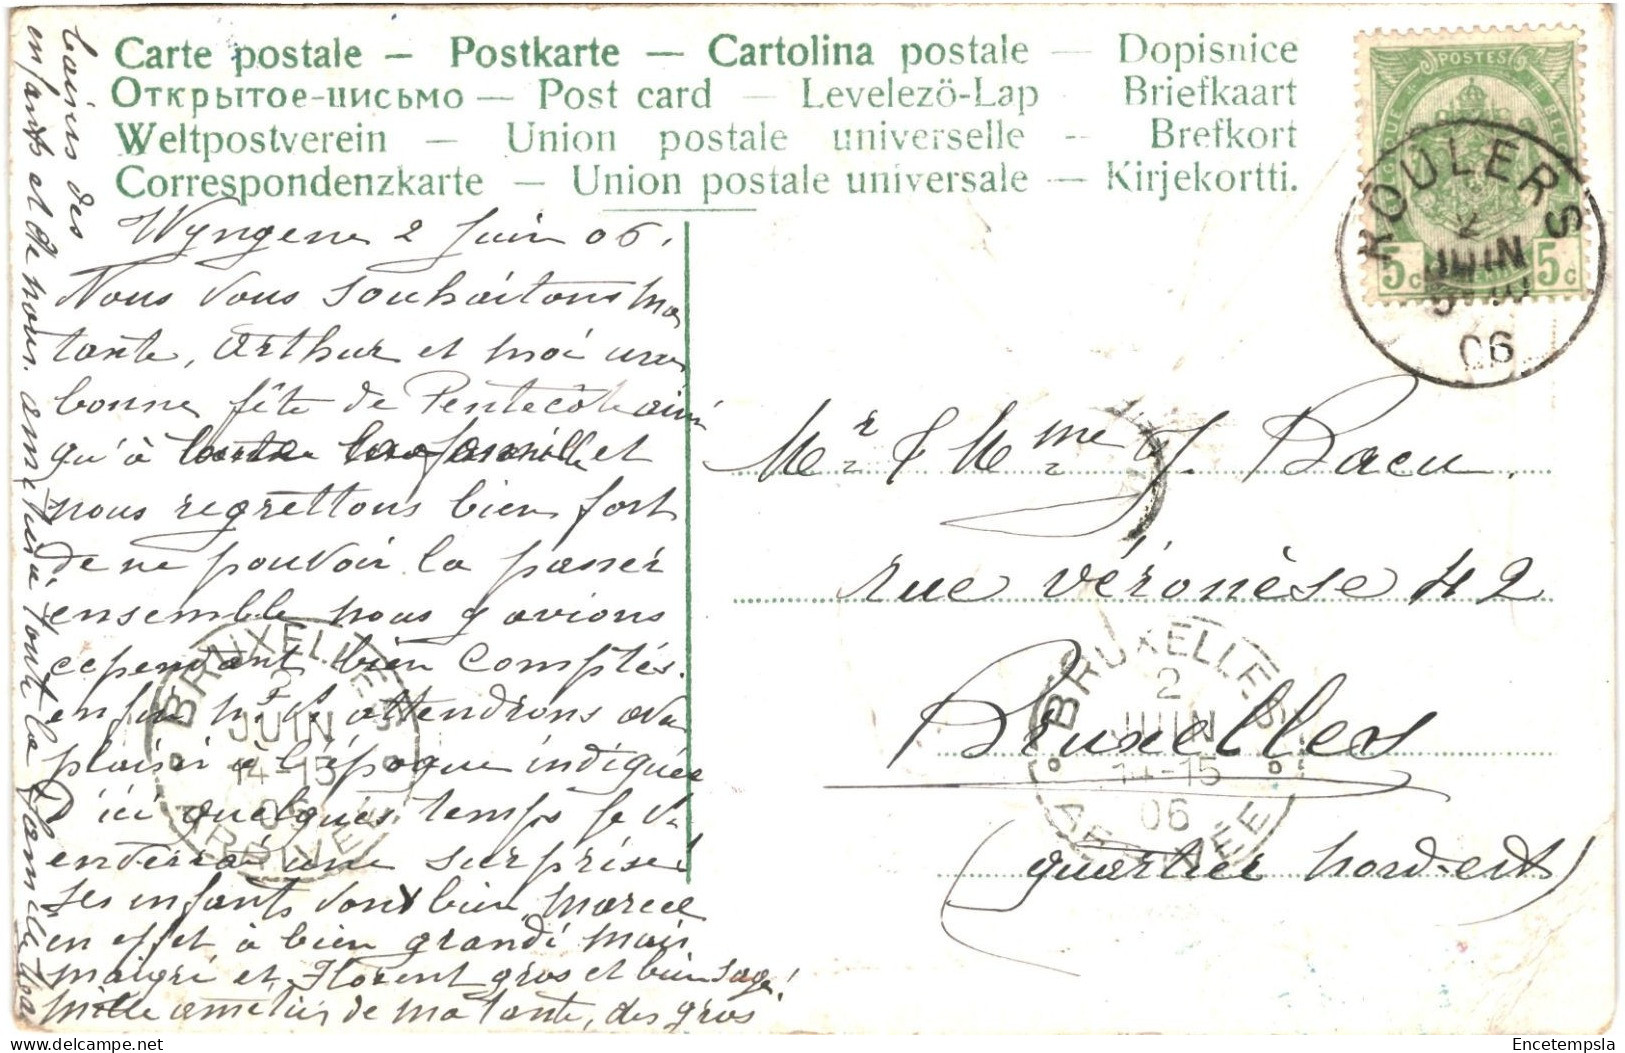 Carte postale — Postkarte — Cartolina postale — Dopisnice
Открытое-письмо — Post card — Levelező-Lap Briefkaart
Weltpostverein — Union postale universelle -- Brefkort
Correspondenzkarte — Union postale universale — Kirjekortti.
Wyngene 2 Juin 06.
Nous vous souhaitons ma
tante, Arthur et moi une
bonne fête de Pentecôte ainsi
qu'à toute la famille et
nous regrettons bien fort
de ne pouvoir la passer
ensemble nous y avions
cependant bien comptés.
enfin attendrons
plaisir à l'époque indiquée
D'ici quelques temps je v.
enverrai une surprise!
Les enfants vont bien, Marcel
en effet à bien grandi mais
maigri et Florent gros et bien sage!
Mille amitiés de ma tante, des gros
baisers des
enfants et de nous. amitiés à toute la famille
POSTES
BELGIQUE
BELGIE
5c 5c
ROULERS
2
JUIN
06
Mr & Mme J. Bacu.
rue véronèse 42
Bruxelles
(quartier nord-est)
BRUXELLES
2
JUIN
14-15
06
ARRIVEE
BRUXELLES
2
JUIN
14-15
06
ARRIVEE
Encetempsla